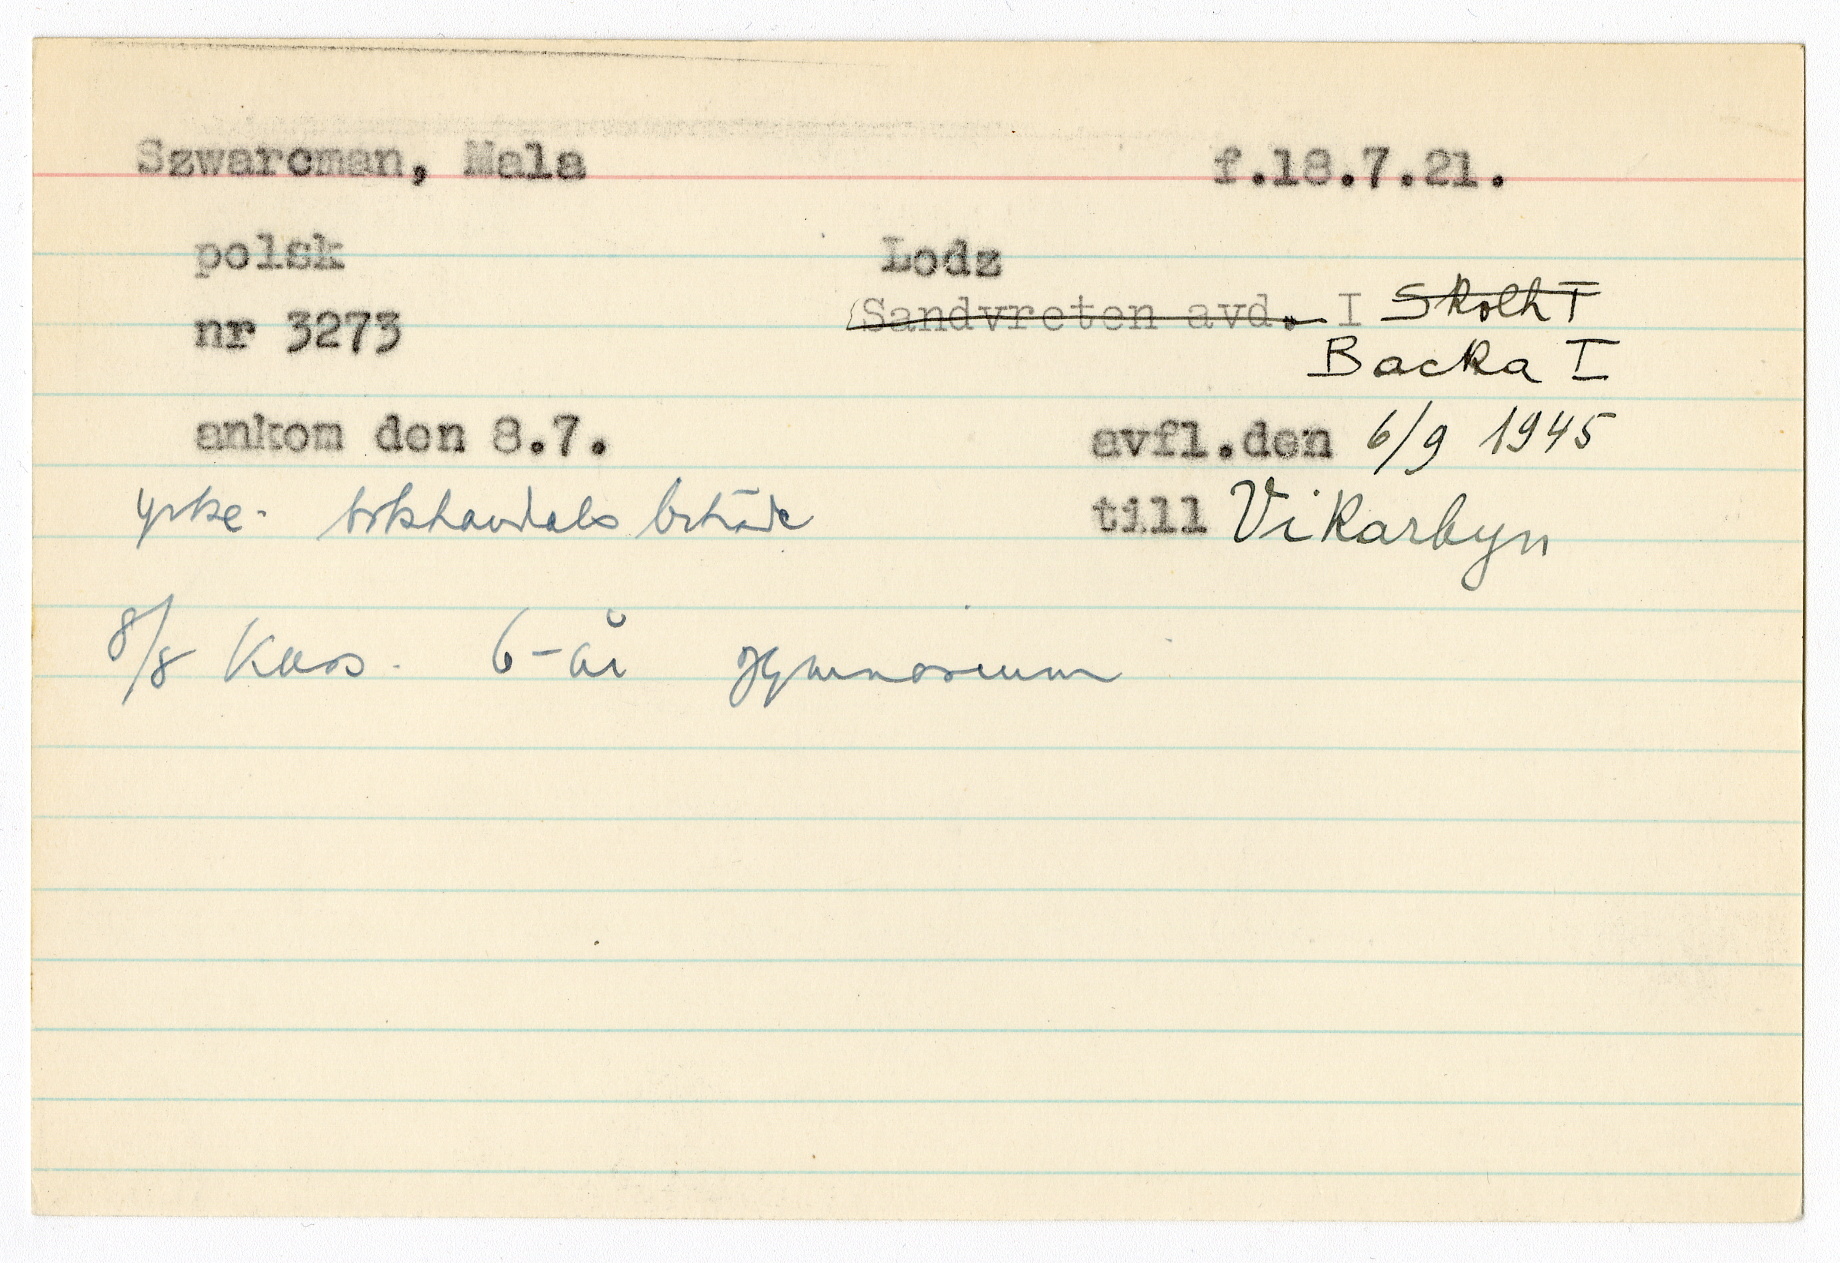 Szwarcman, Mala f.18.7.21.
polsk Lodz
nr 3273 Sandvreten avd. I Skolh I
Backa I
ankom den 8.7. avfl.den 6/9 1945
yrke - bokhandels biträde till Vikarbyn
8/8 Kass. 6-år gymnasium